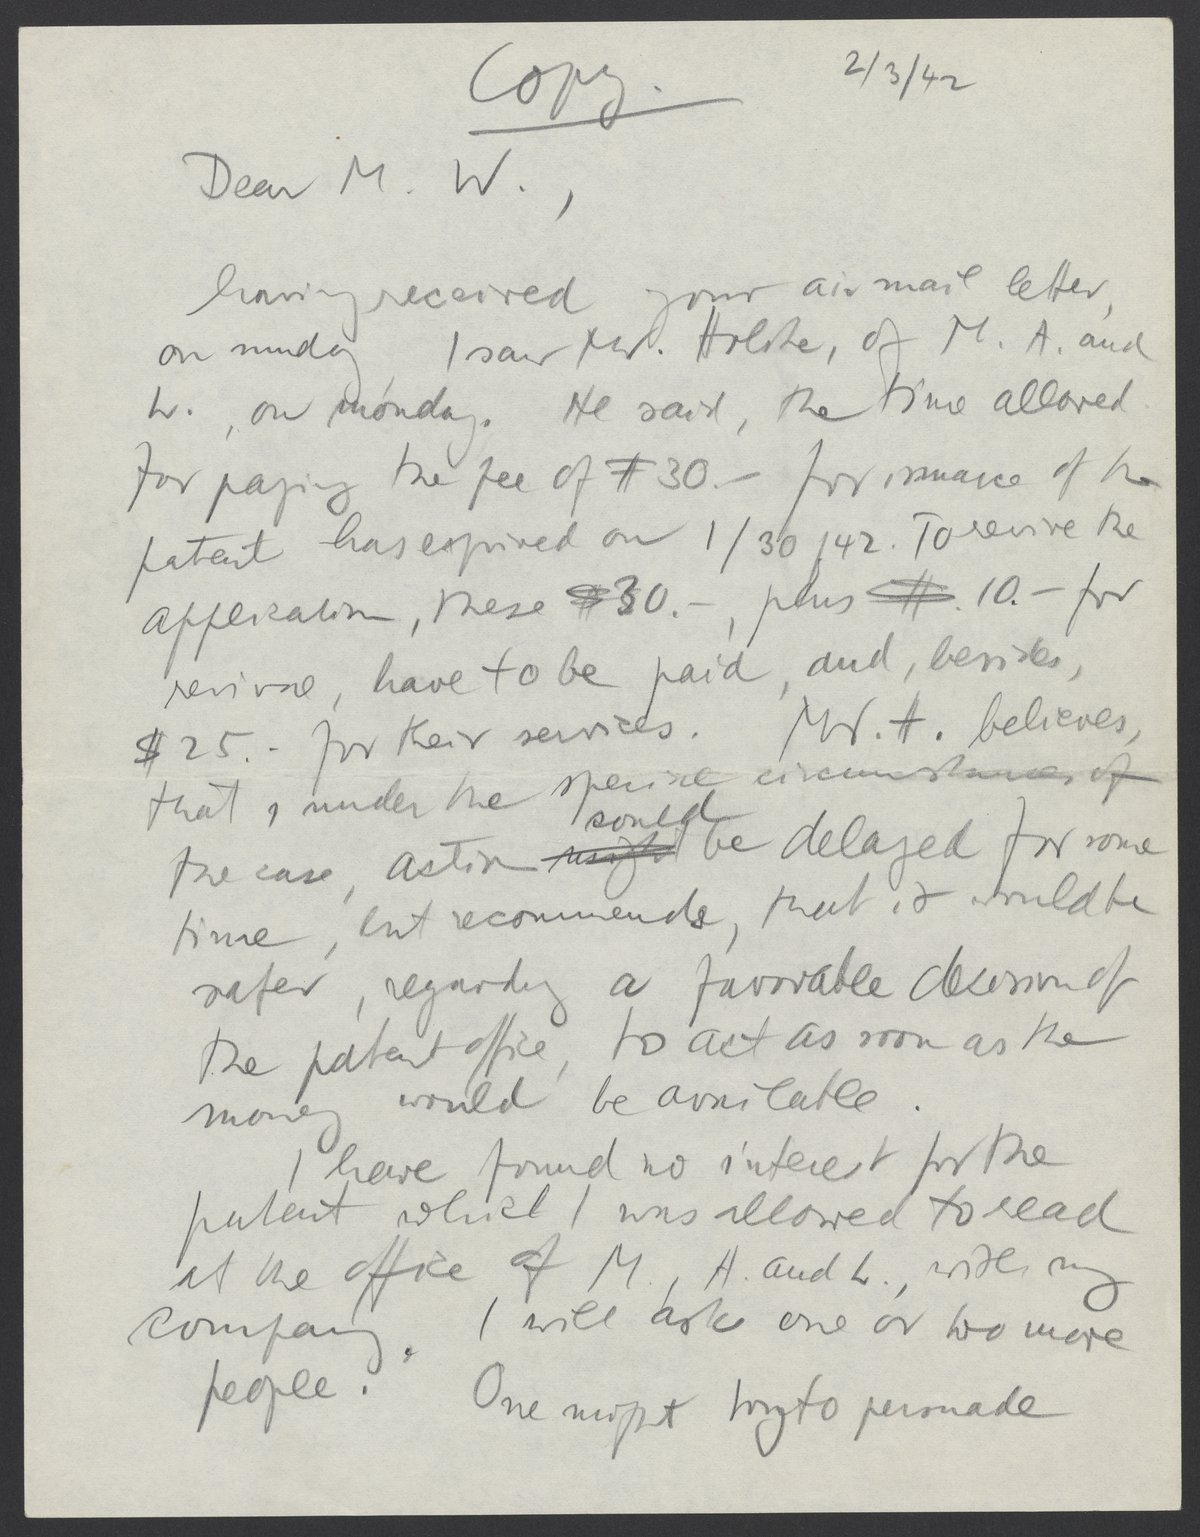 Copy.
2/3/42
Dear M. W.,
having received your air mail letter,
on sunday I saw Mr. Holste, of M. A. and
L., on monday. He said, the time allowed
for paying the fee of $30.- for issuance of the
patent has expired on 1/30/42. To revive the
application, these $30.-, plus $. 10.- for
revival, have to be paid, and, besides,
$25.- for their services. Mr. H. believes,
that, under the special circumstances of
the case, action might sould be delayed for some
time, but recommends, that it would be
safer, regarding a favorable decision of
the patent office, to act as soon as the
money would be available.
I have found no interest for the
patent which I was allowed to read
at the office of M., A. and L., with my
company. I will ask one or two more
people. One might try to persuade